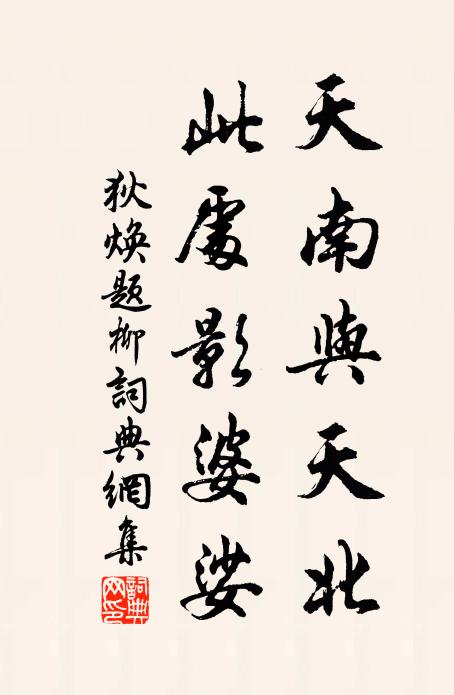 天南與天北
此處影婆娑
狄煥題柳詞典網集
詞典網印